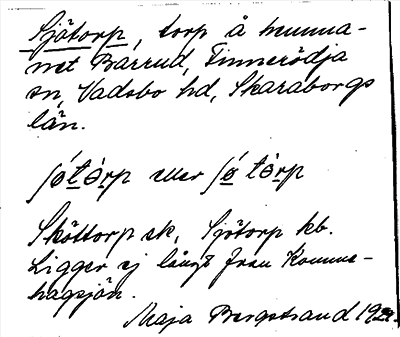 Sjötorp, torp å hemma-
net Barrud, Finnerödja
sn, Vadsbo hd, Skaraborgs
län.
ʃo´ tȯrp eller ʃo´ tȯrp
Sköttorp ek, Sjötorp kb.
Ligger ej långt från Komme-
hagsjön.
Maja Bergstrand 1924.